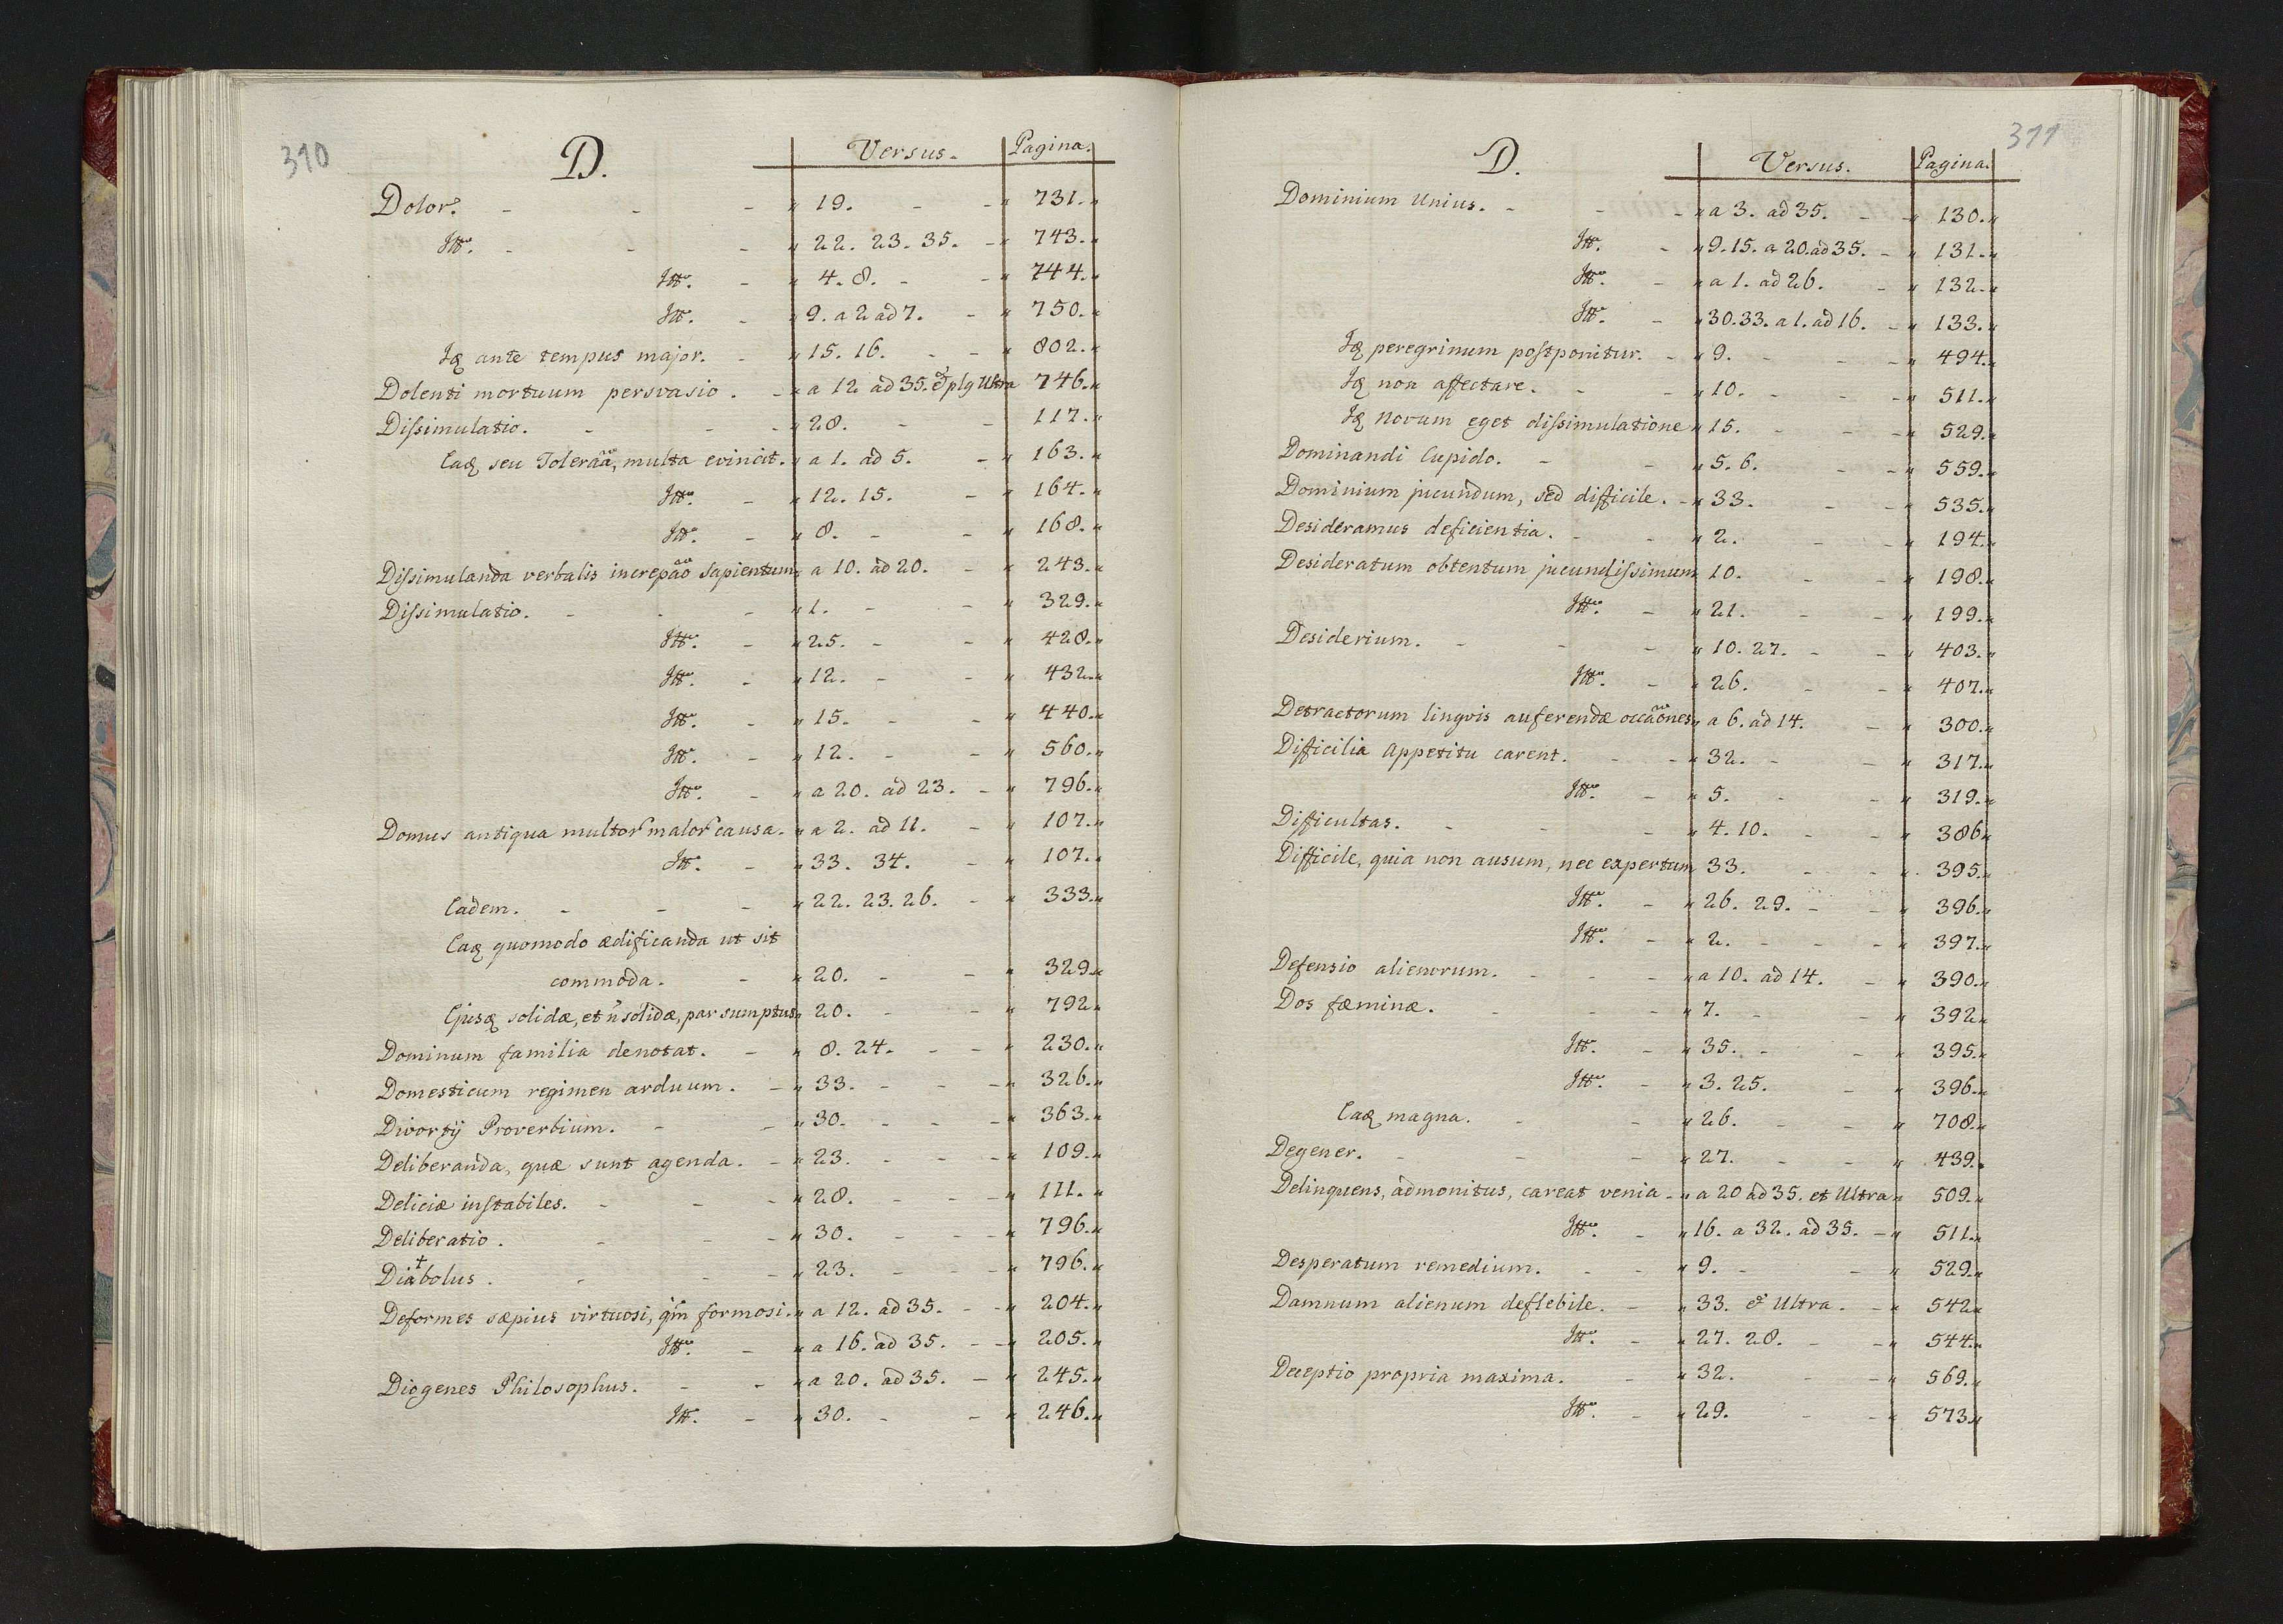 310
D. Versus. Pagina.
Dolor. - - - " 19. - - " 731. "
Itt. - - - " 22. 23. 35. - " 743. "
Itt. - " 4. 8. - - " 744. "
Itt. - " 9. a 2 ad 7. - " 750. "
Idq ante tempus major. - " 15. 16. - - " 802. "
Dolenti mortuum persvasio. - " a 12 ad 35. & plq Ultra 746. "
Dissimulatio. - - - " 28. - - 117. "
Eaq seu Toleraa͠, multa evincit. " a 1. ad 5. - " 163. "
Itt. - " 12. 15. - " 164. "
Itt. - " 8. - - " 168. "
Dissimulanda verbalis increpao͠ sapientum " a 10. ad 20. - " 243. "
Dissimulatio. - - - " 1. - - " 329. "
Itt. - " 25. - - " 428. "
Itt. - " 12. - - " 432. "
Itt. - " 15. - - " 440. "
Itt. - " 12. - - " 560. "
Itt. - " a 20. ad 23. - " 796. "
Domus antiqua multor malor causa. " a 2. ad 11. - " 107. "
Itt. - " 33. 34. - " 107. "
Eadem. - - - " 22. 23. 26. - " 333. "
Eaq quomodo ædificanda ut sit
commoda. - " 20. - - " 329. "
Ejusq solidæ, et n͠ solidæ, par sumptus " 20. - - " 792 "
Dominum familia denotat. - " 8. 24. - - " 230. "
Domesticum regimen arduum. - " 33. - - - " 326. "
Divortij Proverbium. - - " 30. - - - " 363. "
Deliberanda, quæ sunt agenda. - " 23. - - - " 109. "
Deliciæ instabiles. - - - " 28. - - - " 111. "
Deliberatio. - - - " 30. - - - " 796. "
Dia+bolus. - - - " 23. - - - " 796. "
Deformes sæpius virtuosi, qm͠ formosi. " a 12. ad 35. - - " 204. "
Itt. - " a 16. ad 35. - - " 205. "
Diogenes Philosophus. - - " a 20. ad 35. - " 245. "
Itt. - " 30. - - " 246. "
311
D. Versus. Pagina.
Dominium Unius. - - - " a 3. ad 35. - " 130. "
Itt. - " 9. 15. a 20. ad 35. - " 131. "
Itt. - " a 1. ad 26. - " 132. "
Itt. - " 30. 33. a 1. ad 16. - " 133. "
Idq peregrinum postponitur. - " 9. - - - " 494. "
Idq non affectare. - - " 10. - - - " 511. "
Idq novum eget dissimulatione " 15. - - - " 529. "
Dominandi Cupido. - - " 5. 6. - - " 559. "
Dominium jucundum, sed difficile. - " 33. - - " 535. "
Desideramus deficientia. - - " 2. - - " 194. "
Desideratum obtentum jucundissimum " 10. - - " 198. "
Itt. - " 21. - - " 199. "
Desiderium. - - - " 10. 27. - - " 403. "
Itt. - " 26. - - " 407. "
Detractorum lingvis auferendæ occao͠nes " a 6. ad 14. - " 300. "
Difficilia Appetitu carent. - - " 32. - - " 317. "
Itt. - " 5. - - " 319. "
Difficultas. - - - " 4. 10. - - " 386 "
Difficile, quia non ausum, nec expertum 33. - - " 395. "
Itt. - " 26. 29. - - " 396. "
Itt. - " 2. - - - " 397. "
Defensio alienorum. - - - " a 10. ad 14. - " 390. "
Dos fæminæ. - - - " 7. - - " 392 "
Itt. - " 35. - - " 395. "
Itt. - " 3. 25. - " 396. "
Eaq magna. - - " 26. - - " 708. "
Degener. - - - " 27. - - " 439. "
Delinquens, admonitus, careat venia - " a 20 ad 35. et Ultra " 509. "
Itt. - " 16. a 32. ad 35. - " 511. "
Desperatum remedium. - - " 9. - - " 529. "
Damnum alienum deflebile. - " 33. & Ultra. - " 542 "
Itt. - " 27. 28. - - " 544. "
Deceptio propria maxima. - " 32. - - " 569. "
Itt. - " 29. - - " 573. "